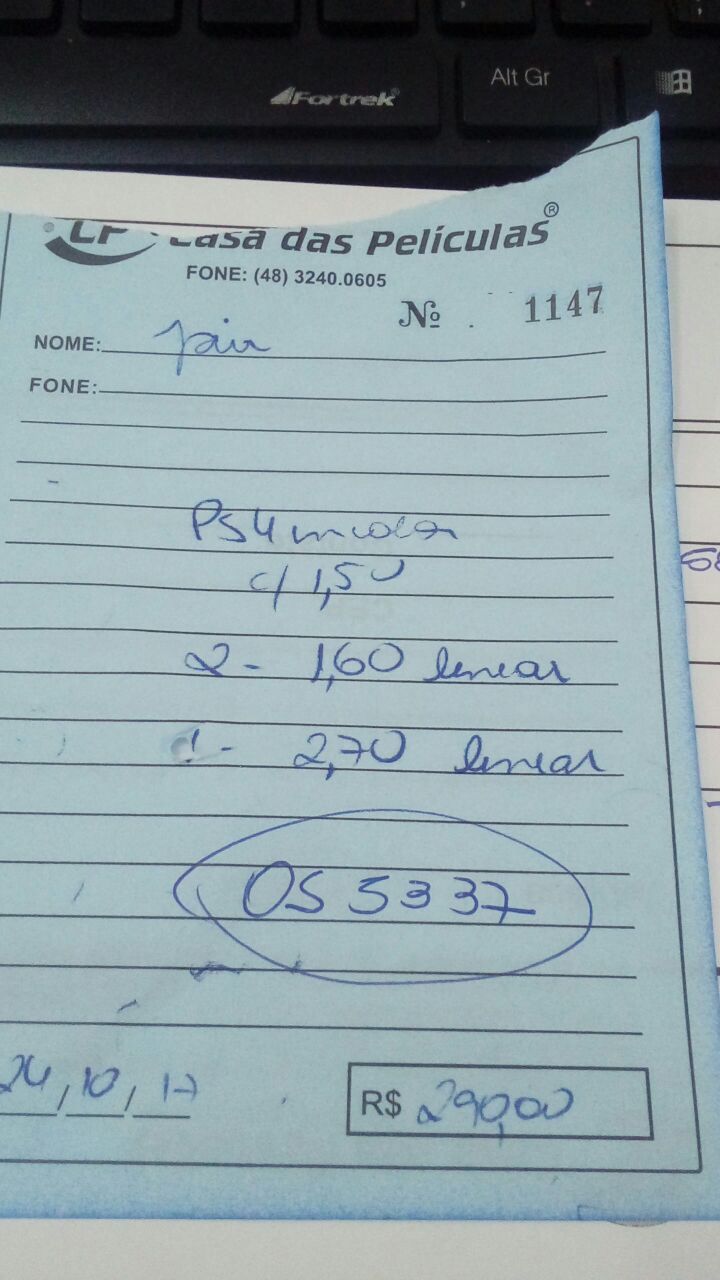 Fortrek
Alt Gr
Casa das Películas®
FONE: (48) 3240.0605
Nº 1147
NOME: Jair
FONE:
PS4 incolor
c/ 1,50
2 - 1,60 linear
1 - 2,70 linear
OS 5337
24, 10, 17
R$ 290,00